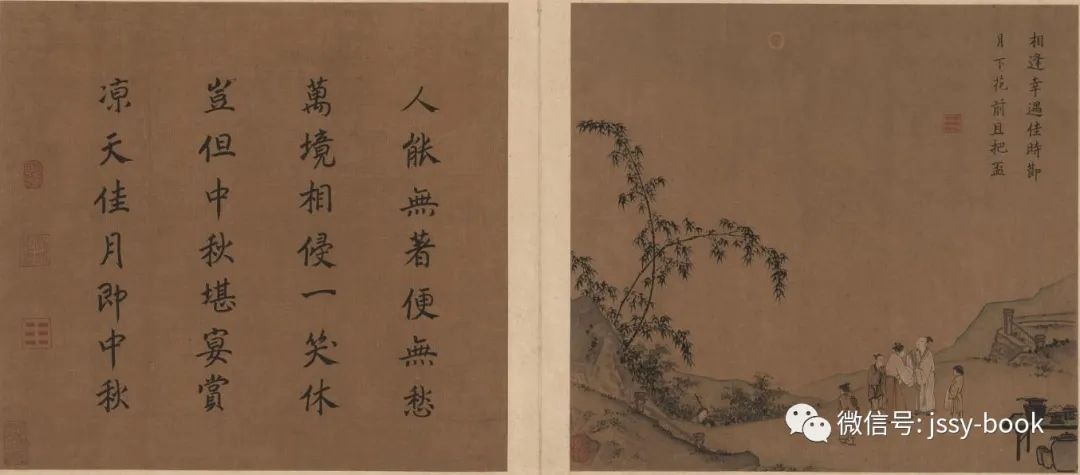 相逢幸遇佳時節
月下花前且把盃
人能無著便無愁
萬境相侵一笑休
豈但中秋堪宴賞
凉天佳月即中秋
微信号: jssy-book